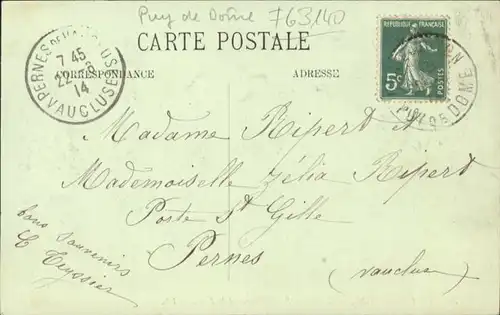 Puy de Dome 763140
CARTE POSTALE
CORRESPONDANCE
ADRESSE
PERNES
VAUCLUSE
7 45
22
14
REPUBLIQUE FRANÇAISE
5c POSTES
DOME
Madame Ripert et
Mademoiselle Zélia Ripert
Poste St Gille
Pernes
(Vaucluse)
bons souvenirs
C Teyssier